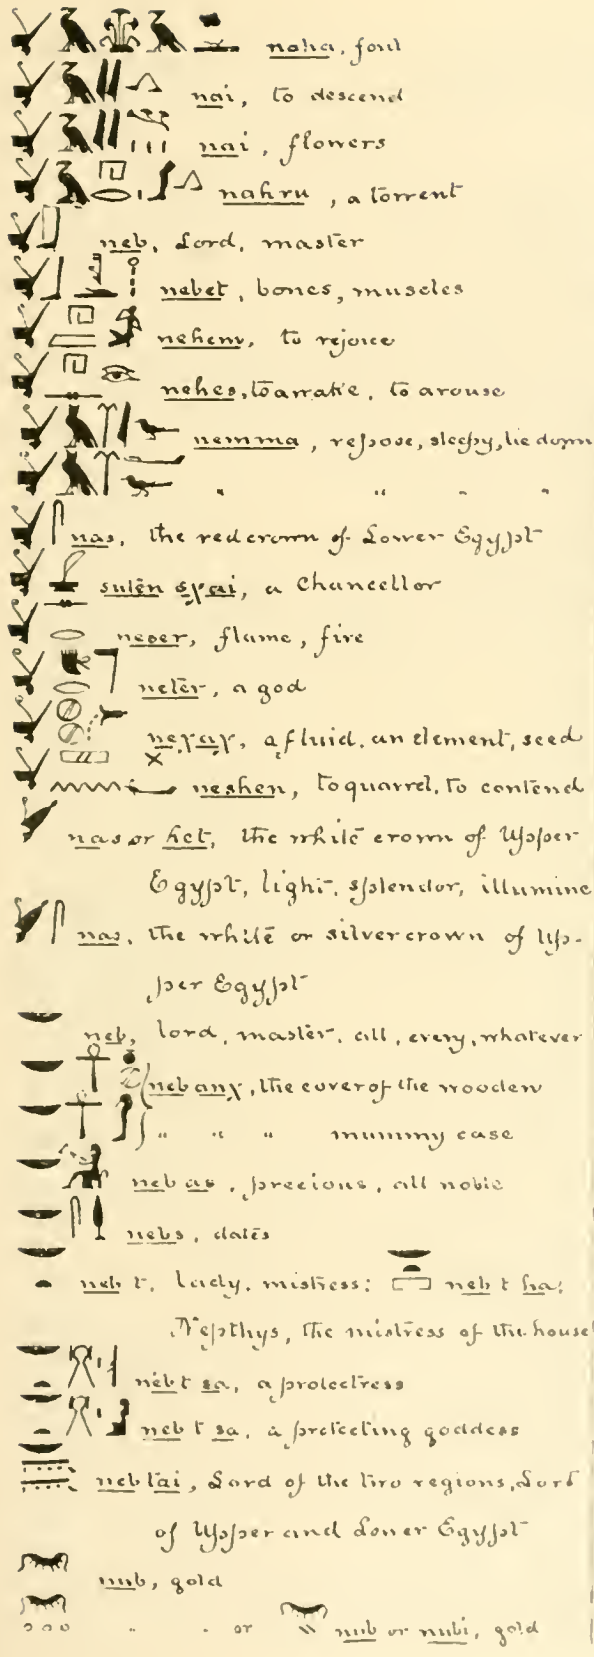 naha, foul
nai, to descend
nai, flowers
nahru, a torrent
neb, Lord, master
nebet, bones, muscles
nehem, to rejoice
nehes, to awake, to arouse
nemma, repose, sleepy, lie down
" " " "
nas, the red crown of Lower Egypt
sutēn sχai, a Chancellor
neser, flame, fire
neter, a god
neχaχ, a fluid, an element, seed
neshen, to quarrel, to contend
nas or het, the white crown of Upper
Egypt, light, splendor, illumine
nas, the white or silver crown of Up-
per Egypt
neb, lord, master, all, every, whatever
neb anχ, the cover of the wooden
" " " mummy case
neb as, precious, all noble
nebs, dates
neb t, Lady, mistress; neb t ha;
Nepthys, the mistress of the house
neb t sa, a protectress
neb t sa, a protecting goddess
neb tai, Lord of the two regions, Lord
of Upper and Lower Egypt
nub, gold
" " or nub or nubi, gold